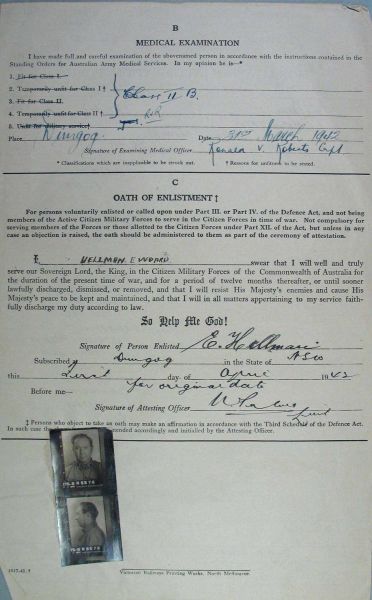 B
MEDICAL EXAMINATION
I have made full and careful examination of the abovenamed person in accordance with the instructions contained in the
Standing Orders for Australian Army Medical Services. In my opinion he is—*
1. Fit for Class I.
2. Temporarily unfit for Class I †
3. Fit for Class II.
4. Temporarily unfit for Class II †
5. Unfit for military service
Class II B.
Place Dungog Date 31st March 1942
Signature of Examining Medical Officer Ronald V. Roberts Capt
* Classifications which are inapplicable to be struck out. † Reasons for unfitness to be stated.
C
OATH OF ENLISTMENT ‡
For persons voluntarily enlisted or called upon under Part III. or Part IV. of the Defence Act, and not being
members of the Active Citizen Military Forces to serve in the Citizen Forces in time of war. Not compulsory for
serving members of the Forces or those allotted to the Citizen Forces under Part XII. of the Act, but unless in any
case an objection is raised, the oath should be administered to them as part of the ceremony of attestation.
I, EDWARD swear that I will well and truly
serve our Sovereign Lord, the King, in the Citizen Military Forces of the Commonwealth of Australia for
the duration of the present time of war, and for a period of twelve months thereafter, or until sooner
lawfully discharged, dismissed, or removed, and that I will resist His Majesty's enemies and cause His
Majesty's peace to be kept and maintained, and that I will in all matters appertaining to my service faith-
fully discharge my duty according to law.
So Help Me God!
Signature of Person Enlisted E.
Subscribed at Dungog in the State of NSW
this day of April 1942
for original date
Before me—
Signature of Attesting Officer Lieut
‡ Persons who object to take an oath may make an affirmation in accordance with the Third Schedule of the Defence Act.
In such case the amended accordingly and initialled by the Attesting Officer.
Victorian Railways Printing Works, North Melbourne